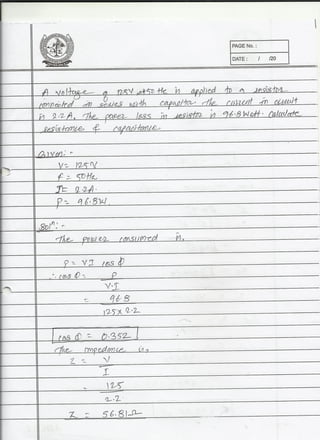 PAGE No. :
DATE : / /20
A voltage of 125V at 50 Hz is applied to a resistor
connected in series with capacitor. The current in circuit
is 2.2A. The power loss in resistor is 96.8 Watt. Calculate
resistance & capacitance.
Given :-
V = 125V
f = 50Hz
I = 2.2A.
P = 96.8W.
Solⁿ :-
The power consumed is,
P = VI cos Φ
∴ cos Φ = P
V.I
= 96.8
125 x 2.2
cos Φ = 0.352
The impedance is,
Z = V
I
= 125
2.2
Z = 56.81Ω